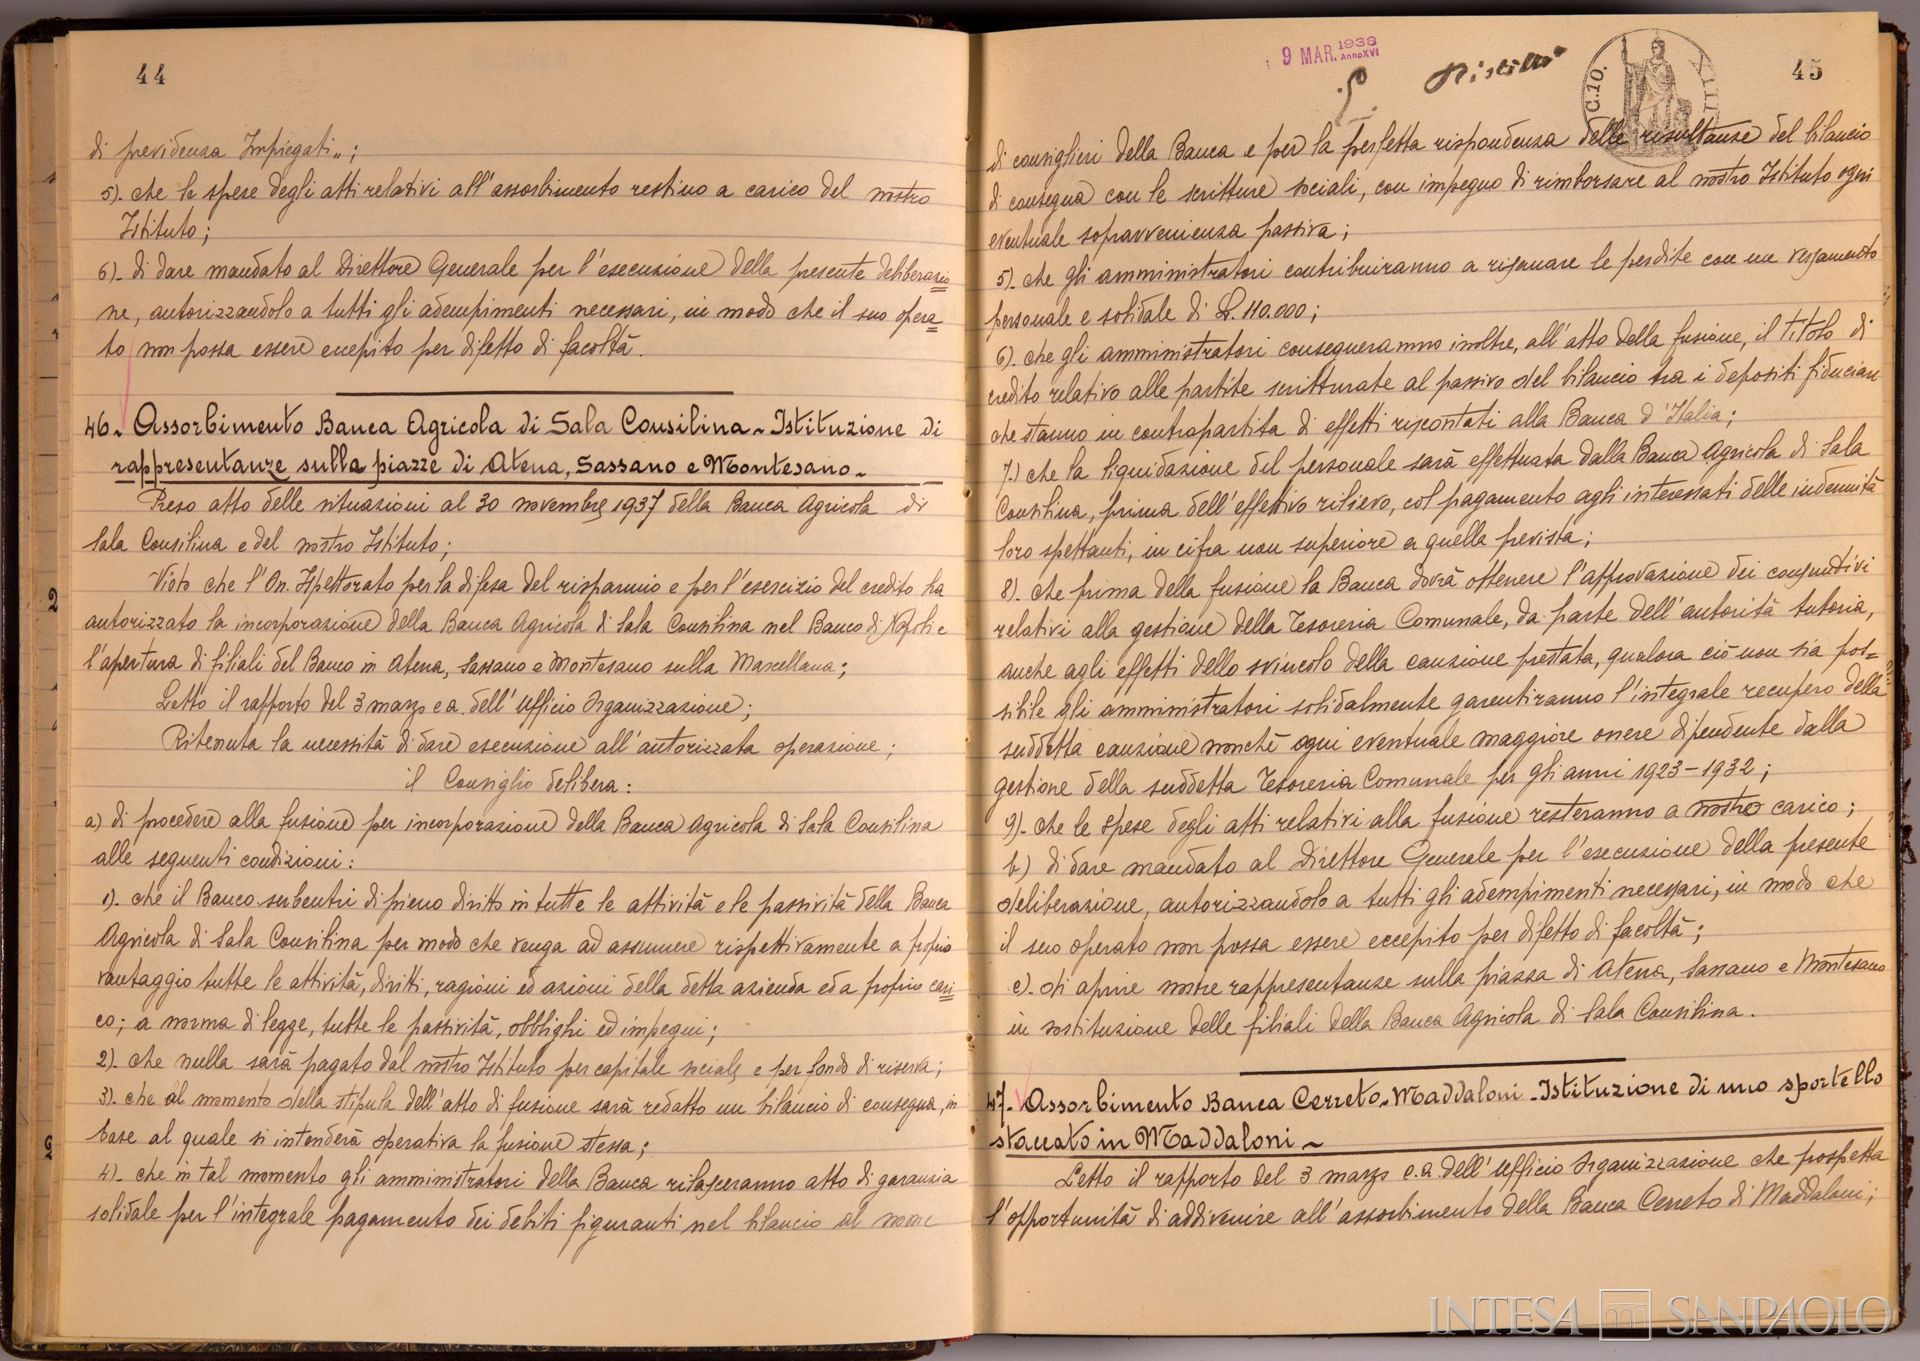 44
di previdenza Impiegati„;
5)- che le spese degli atti relativi all'assorbimento restino a carico del nostro
Istituto;
6)- di dare mandato al Direttore Generale per l'esecuzione della presente deliberazio
ne, autorizzandolo a tutti gli adempimenti necessari, in modo che il suo opera=
to non possa essere eccepito per difetto di facoltà.
46- Assorbimento Banca Agricola di Sala Consilina - Istituzione di
rappresentanze sulla piazze di Atena, Sassano e Montesano-
Preso atto delle situazioni al 30 novembre 1937 della Banca Agricola di
Sala Consilina e del nostro Istituto;
Visto che l'On. Ispettorato per la difesa del risparmio e per l'esercizio del credito ha
autorizzato la incorporazione della Banca Agricola di Sala Consilina nel Banco di Napoli e
l'apertura di filiali del Banco in Atena, Sassano e Montesano sulla Marcellana;
Letto il rapporto del 3 marzo c.a. dell'Ufficio Organizzazione;
Ritenuta la necessità di dare esecuzione all'autorizzata operazione;
il Consiglio delibera:
a) di procedere alla fusione per incorporazione della Banca Agricola di Sala Consilina
alle seguenti condizioni:
1)- che il Banco subentri di pieno diritto in tutte le attività e le passività della Banca
Agricola di Sala Consilina per modo che venga ad assumere rispettivamente a proprio
vantaggio tutte le attività, diritti, ragioni ed azioni della detta azienda ed a proprio cari=
co; a norma di legge, tutte le passività, obblighi ed impegni;
2)- che nulla sarà pagato dal nostro Istituto per capitale sociale e per fondo di riserva;
3)- che al momento della stipula dell'atto di fusione sarà redatto un bilancio di consegna, in
base al quale si intenderà operativa la fusione stessa;
4)- che in tal momento gli amministratori della Banca rilasceranno atto di garanzia
solidale per l'integrale pagamento dei debiti figuranti nel bilancio al nome
9 MAR. 1938
Anno XVI
C.10.
XIII
45
di consiglieri della Banca e per la perfetta rispondenza delle risultanze del bilancio
di consegna con le scritture sociali, con impegno di rimborsare al nostro Istituto ogni
eventuale sopravvenienza passiva;
5)- che gli amministratori contribuiranno a risanare le perdite con un versamento
personale e solidale di L. 110.000;
6)- che gli amministratori conseguiranno inoltre, all'atto della fusione, il titolo di
credito relativo alle partite scritturate al passivo del bilancio tra i depositi fiduciari
che stanno in contropartita di effetti riscontati alla Banca d'Italia;
7)- che la liquidazione del personale sarà effettuata dalla Banca Agricola di Sala
Consilina, prima dell'effettivo rilievo, col pagamento agli interessati delle indennità
loro spettanti, in cifra non superiore a quella prevista;
8)- che prima della fusione la Banca dovrà ottenere l'approvazione dei consuntivi
relativi alla gestione della Tesoreria Comunale, da parte dell'autorità tutoria,
anche agli effetti dello svincolo della cauzione prestata, qualora ciò non sia pos=
sibile gli amministratori solidalmente garentiranno l'integrale recupero della
suddetta cauzione nonchè ogni eventuale maggiore onere dipendente dalla
gestione della suddetta Tesoreria Comunale per gli anni 1923-1932;
9)- che le spese degli atti relativi alla fusione resteranno a nostro carico;
b) di dare mandato al Direttore Generale per l'esecuzione della presente
deliberazione, autorizzandolo a tutti gli adempimenti necessari, in modo che
il suo operato non possa essere eccepito per difetto di facoltà;
c)- di aprire nostre rappresentanze sulla piazza di Atena, Sassano e Montesano
in sostituzione delle filiali della Banca Agricola di Sala Consilina.
47- Assorbimento Banca Cerreto-Maddaloni - Istituzione di uno sportello
staccato in Maddaloni-
Letto il rapporto del 3 marzo c.a. dell'Ufficio Organizzazione che prospetta
l'opportunità di addivenire all'assorbimento della Banca Cerreto di Maddaloni;
INTESA SANPAOLO